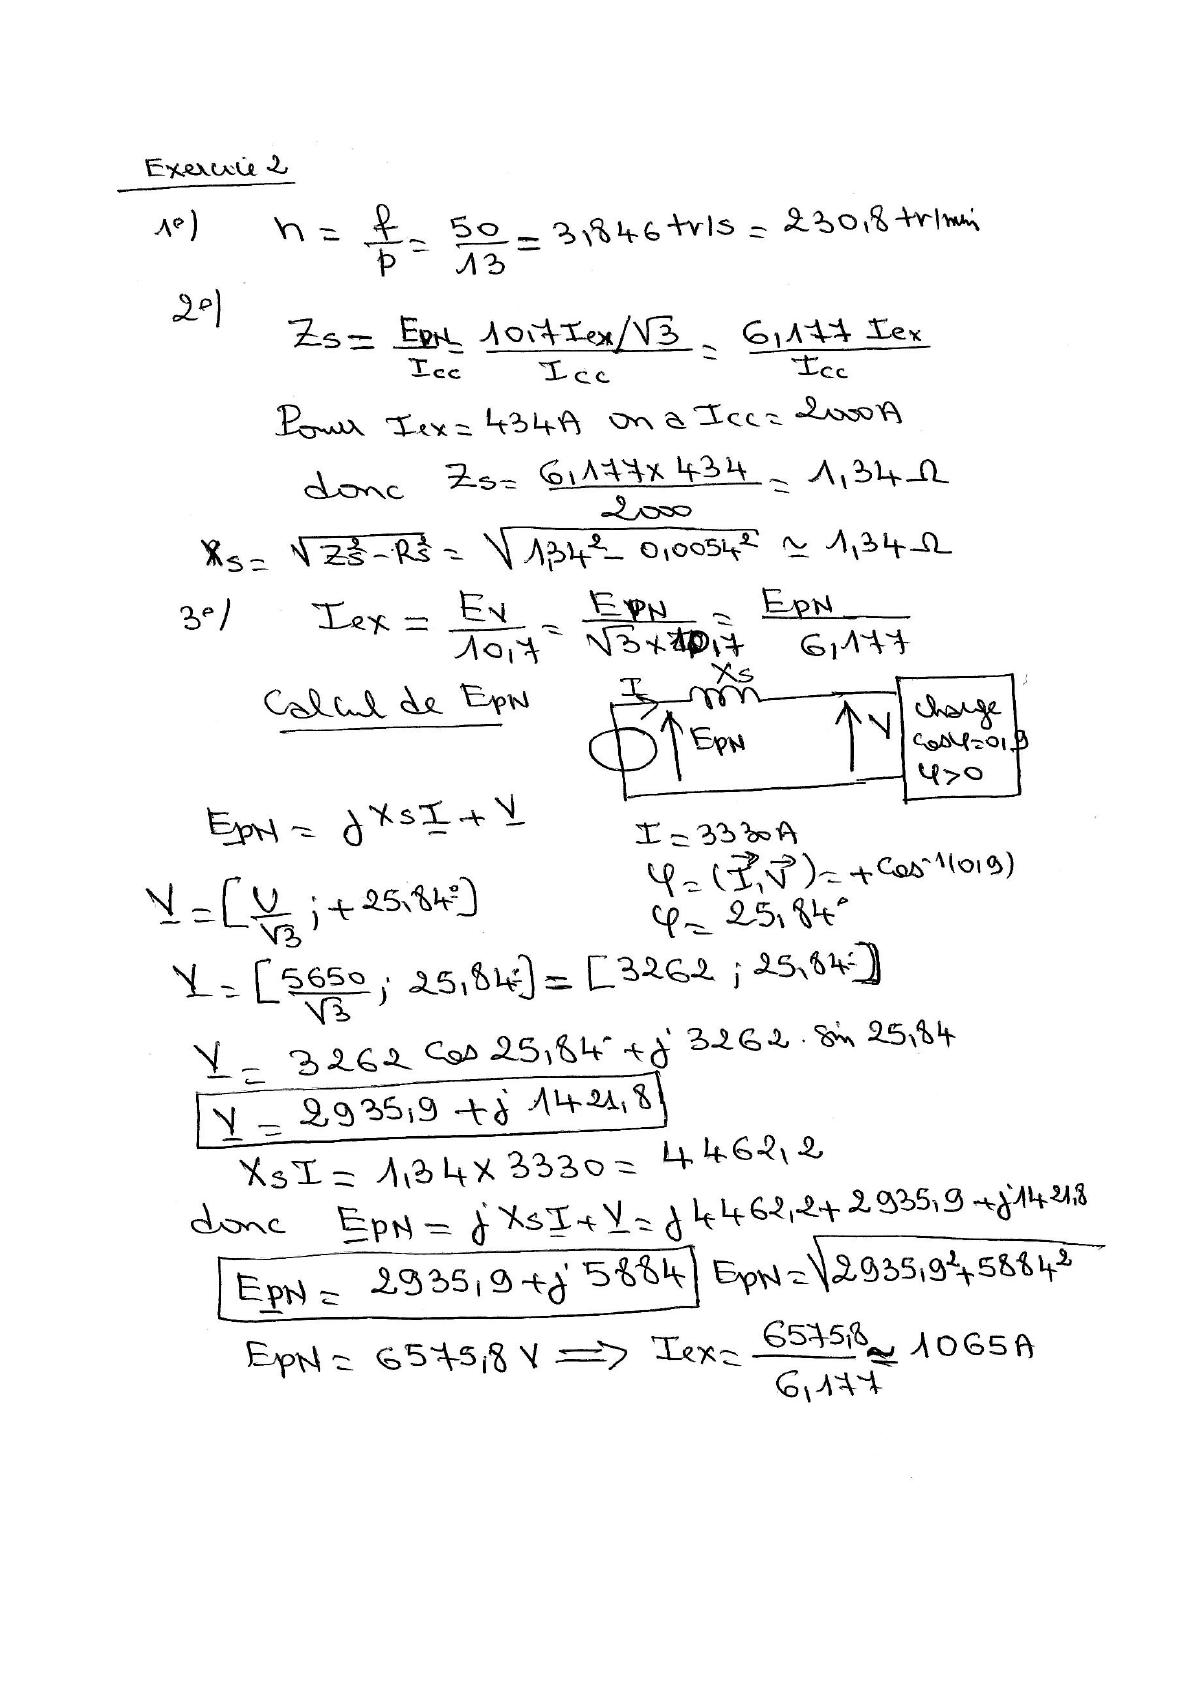 Exercice 2
1°) n = f/p = 50/13 = 3,846 tr/s = 230,8 tr/min
2°/ Zs = EPN/Icc = 10,7 Iex/√3 / Icc = 6,177 Iex / Icc
Pour Iex = 434A on a Icc = 2000A
donc Zs = 6,177 x 434 / 2000 = 1,34 Ω
Xs = √Zs² - Rs² = √1,34² - 0,0054² ≃ 1,34 Ω
3°/ Iex = Ev/10,7 = EPN/√3 x 10,7 = EPN/6,177
Calcul de EPN
I Xs
EPN V
charge
cosφ=0,9
φ>0
EPN = jXsI + V
I = 3330A
φ = (I,V) = + Cos⁻¹(0,9)
φ = 25,84°
V = [U/√3 ; + 25,84°]
V = [5650/√3 ; 25,84°] = [3262 ; 25,84°]
V = 3262 Cos 25,84° + j 3262 . Sin 25,84
V = 2935,9 + j 1421,8
XsI = 1,34 x 3330 = 4462,2
donc EPN = jXsI + V = j4462,2 + 2935,9 + j1421,8
EPN = 2935,9 + j 5884 EPN = √2935,9² + 5884²
EPN = 6575,8 V ⟹ Iex = 6575,8/6,177 ≃ 1065A